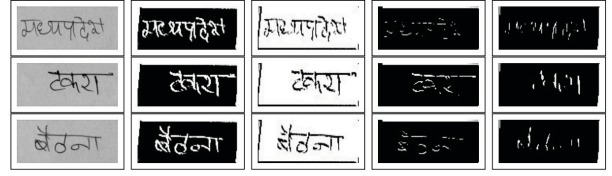 मध्यप्रदेश मध्यप्रदेश मध्यप्रदेश
टकरा टकरा टकरा
बैठना बैठना बैठना